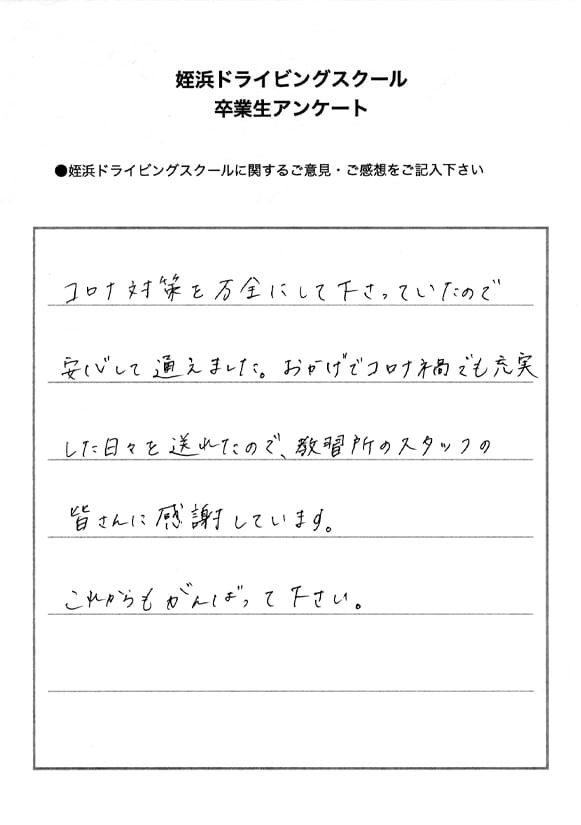 姪浜ドライビングスクール
卒業生アンケート
●姪浜ドライビングスクールに関するご意見・ご感想をご記入下さい
コロナ対策を万全にして下さっていたので
安心して通えました。おかげでコロナ禍でも充実
した日々を送れたので、教習所のスタッフの
皆さんに感謝しています。
これからもがんばって下さい。